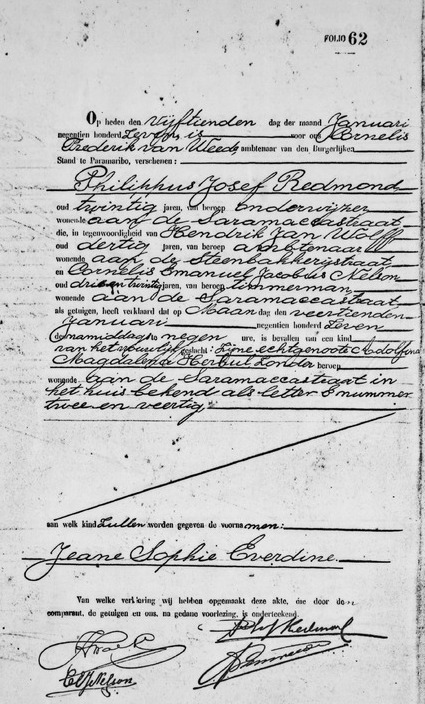 FOLIO 62
Op heden den vijftienden dag der maand Januari
negentien honderd zeven is voor ons Cornelis
Frederik van Weede, ambtenaar van den Burgerlijken
Stand te Paramaribo, verschenen:
Philippus Josef Redmond
oud twintig jaren, van beroep onderwijzer
wonende aan de Saramaccastraat
die, in tegenwoordigheid van Hendrik Jan Wolff
oud dertig jaren, van beroep ambtenaar
wonende aan de Steenbakkerijstraat
en Cornelis Emanuel Jacobus Nelson
oud drie en twintig jaren, van beroep timmerman
wonende aan de Saramaccastraat
als getuigen, heeft verklaard dat op Maandag den veertienden
Januari negentien honderd zeven
des namiddags negen ure, is bevallen van een kind
van het vrouwelijk geslacht: zijne echtgenoote Adolfina
Magdalena Herbut zonder beroep
wonende aan de Saramaccastraat in
het huis bekend als letter E nummer
twee en veertig
aan welk kind zullen worden gegeven de voornamen:
Jeane Sophie Everdine
Van welke verklaring wij hebben opgemaakt deze akte, die door den
comparant, de getuigen en ons, na gedane voorlezing, is onderteekend.
Redmond
CEJNelson